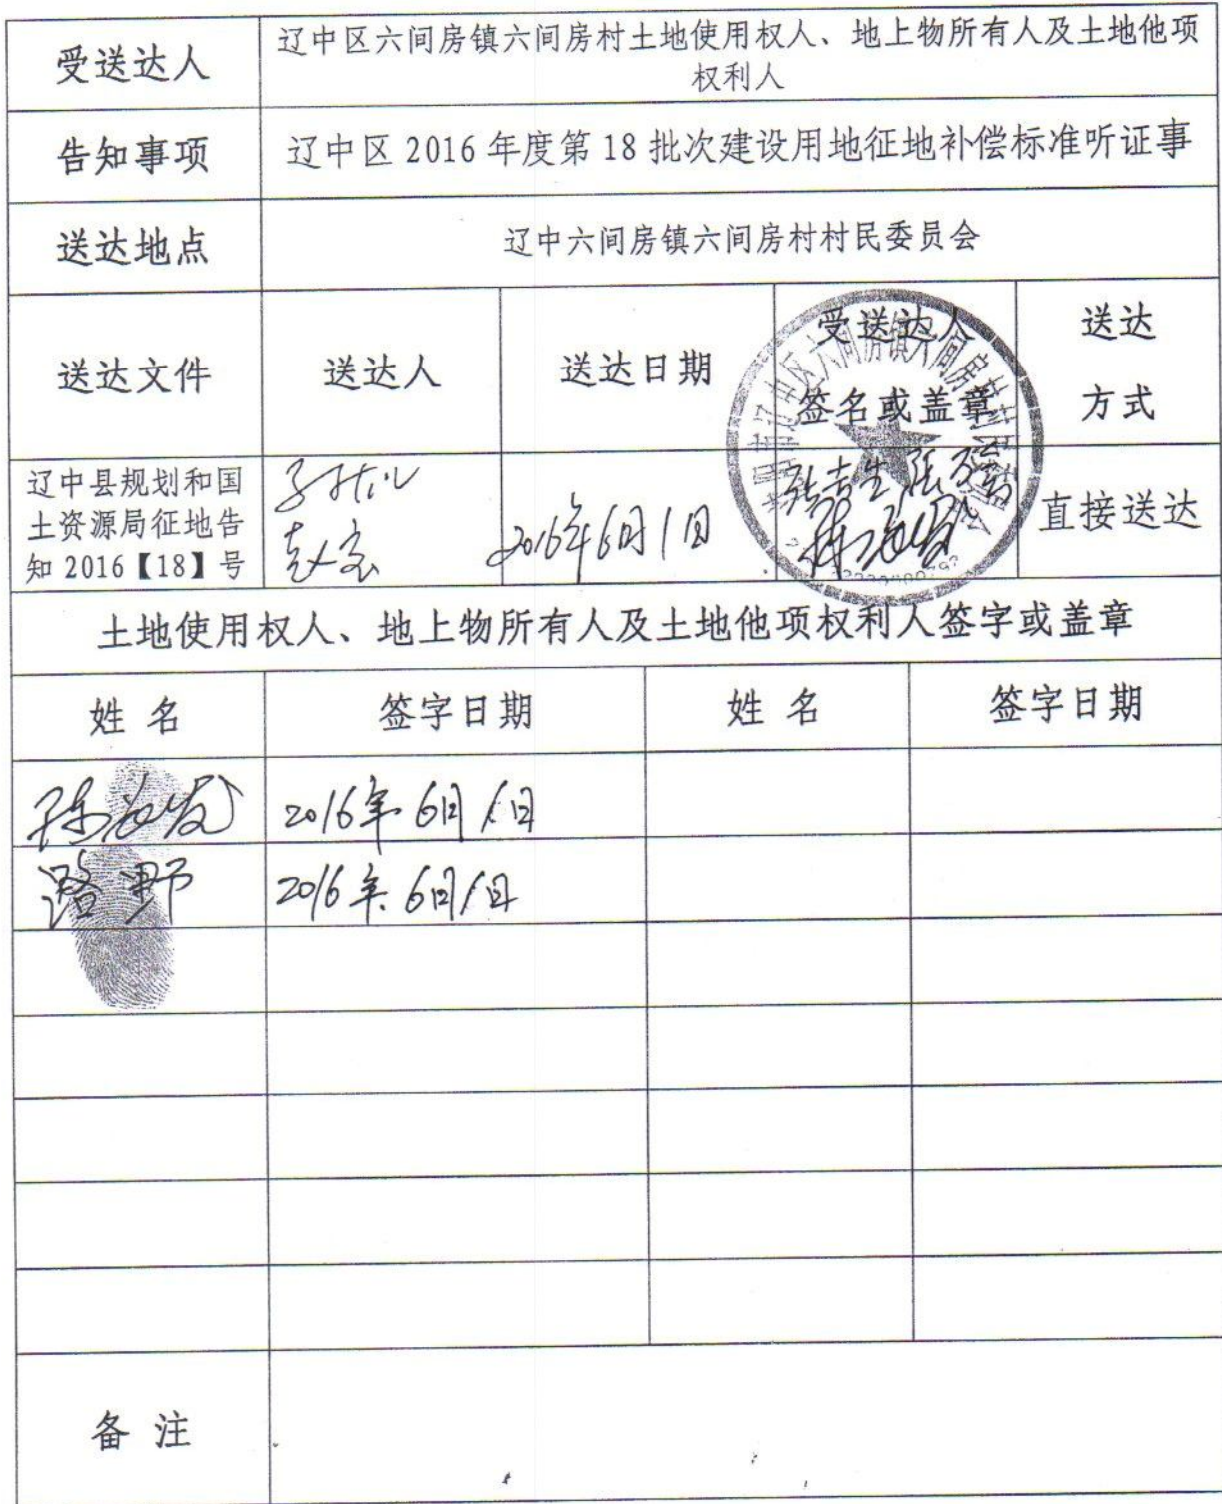 受送达人
辽中区六间房镇六间房村土地使用权人、地上物所有人及土地他项
权利人
告知事项
辽中区 2016 年度第 18 批次建设用地征地补偿标准听证事
送达地点
辽中六间房镇六间房村村民委员会
送达文件
送达人
送达日期
受送达人
签名或盖章
送达
方式
辽中县规划和国
土资源局征地告
知 2016【18】号
2016年6月1日
直接送达
土地使用权人、地上物所有人及土地他项权利人签字或盖章
姓 名
签字日期
姓 名
签字日期
2016年6月1日
路野
2016年6月1日
备 注